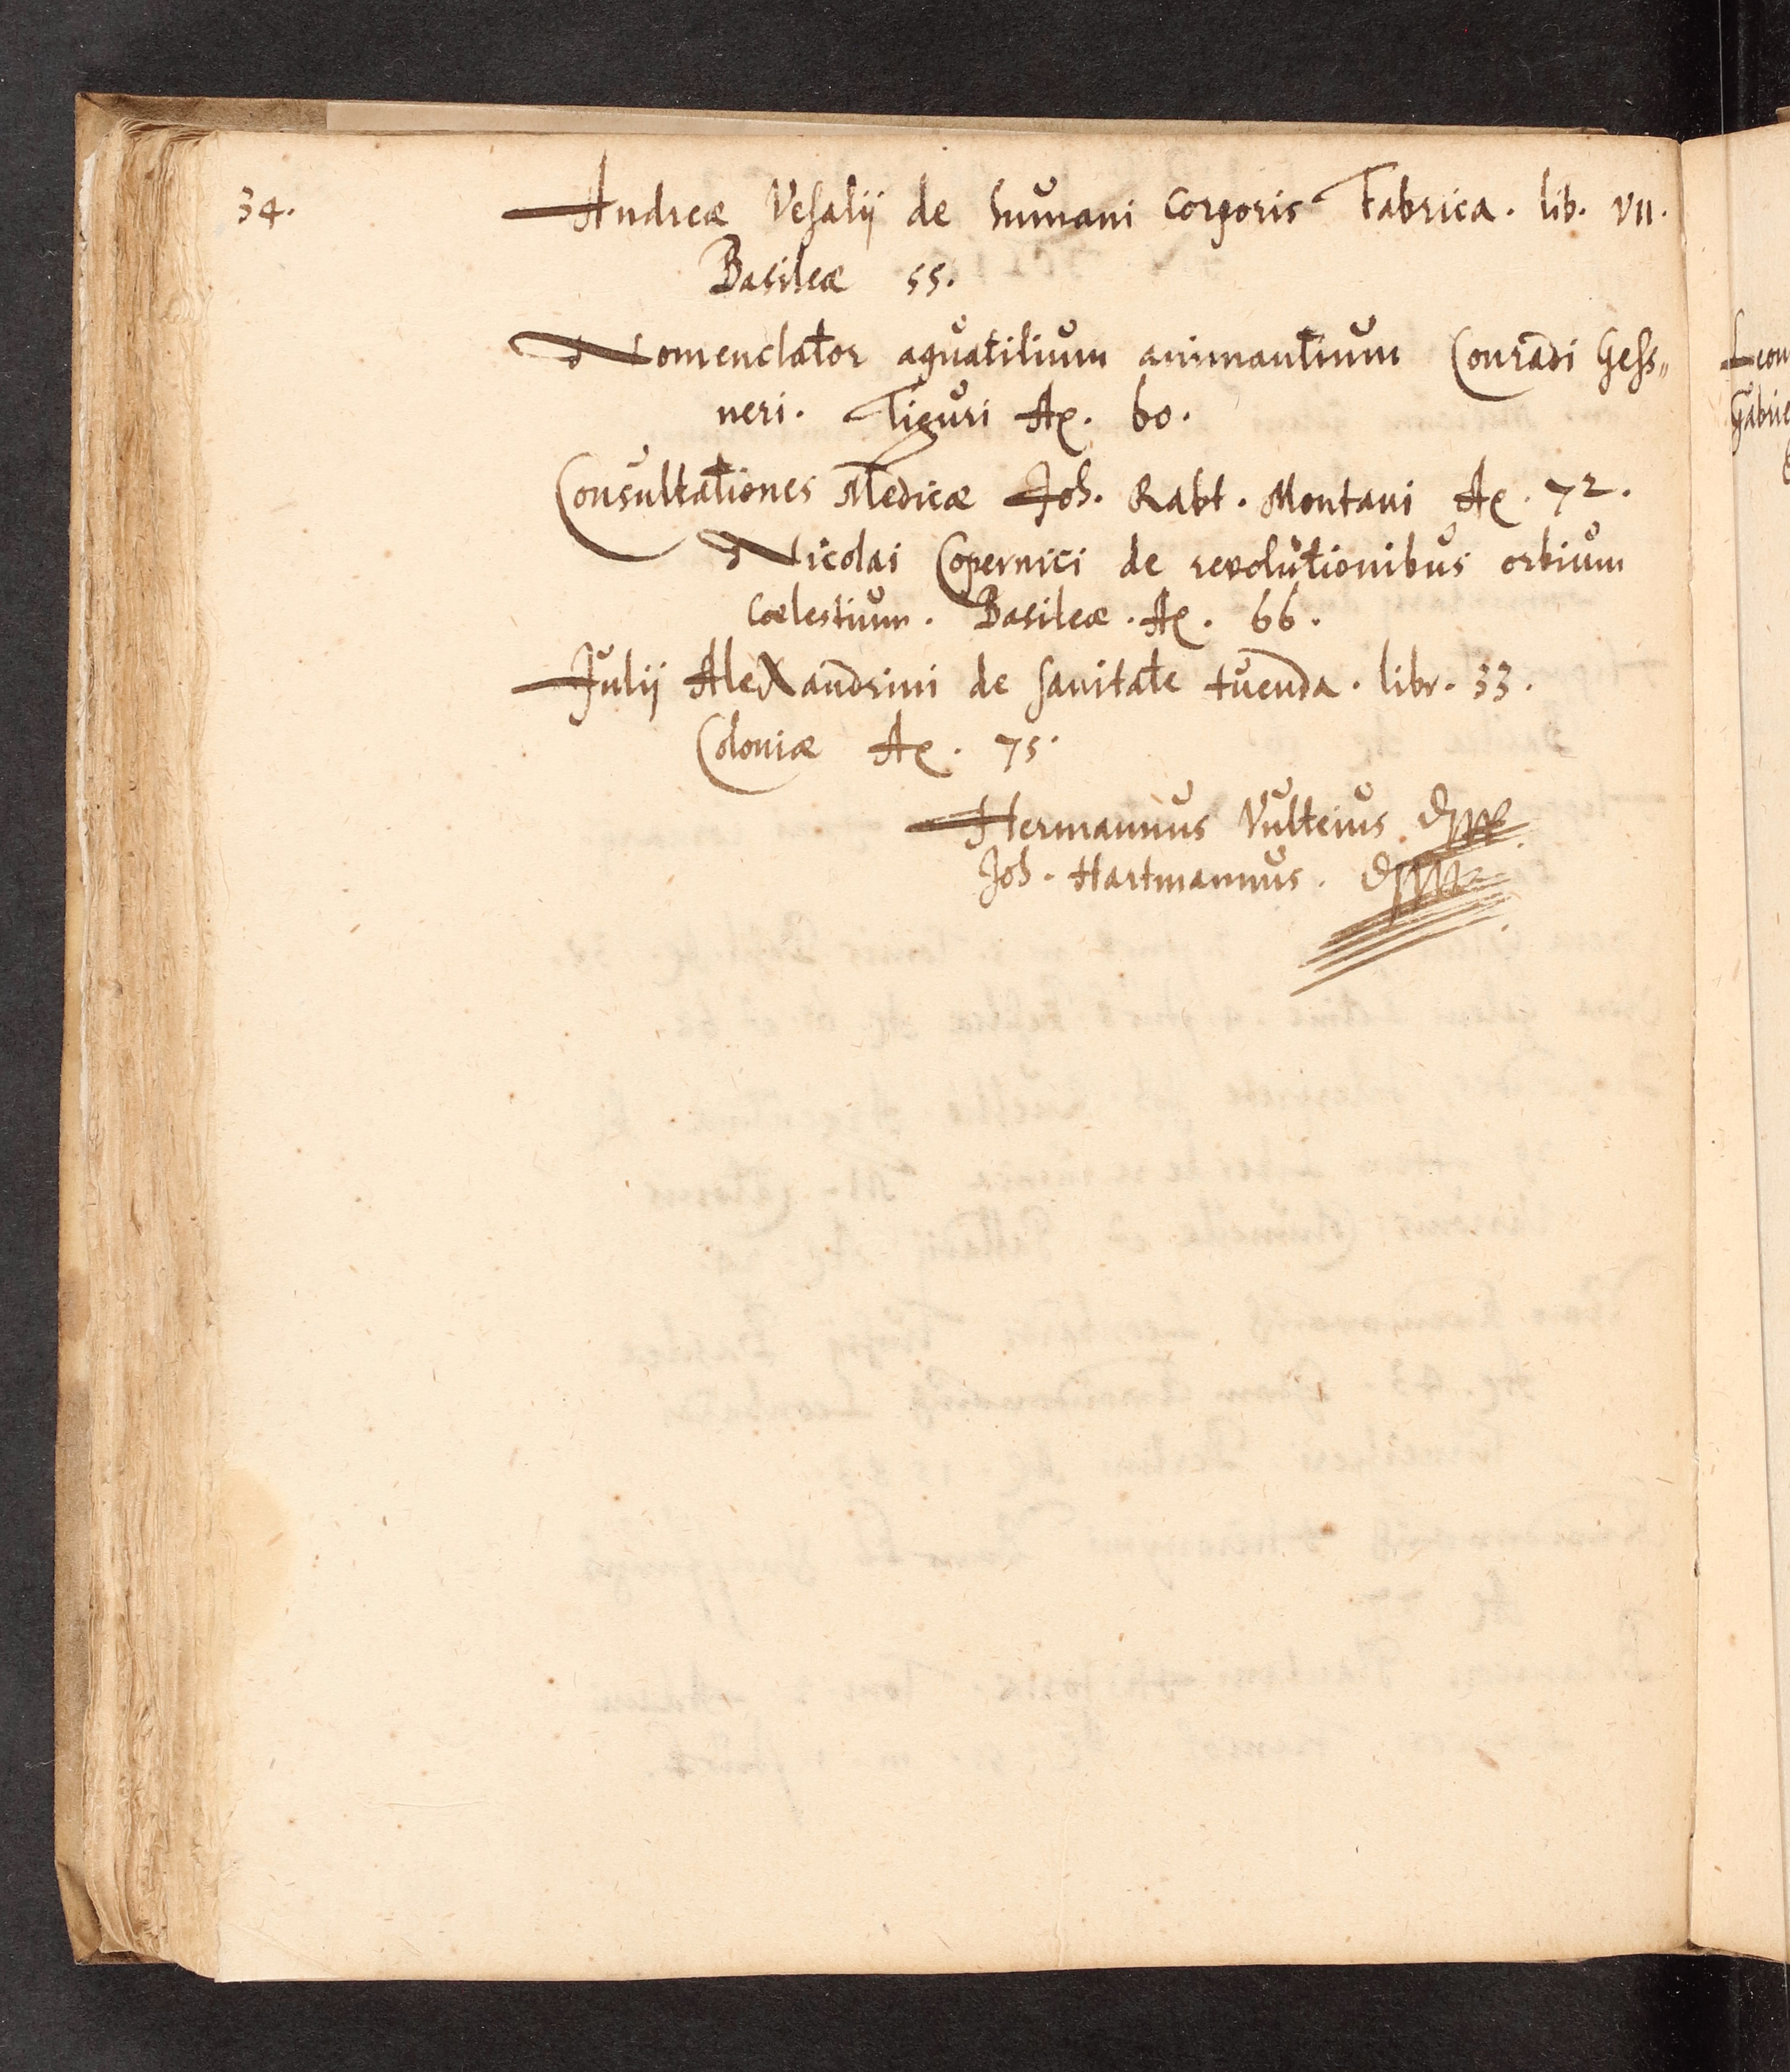 34.
Andreæ Vesalij de humani corporis Fabrica. lib. VII.
Basileæ 55.
Nomenclator aquatilium animantium Conradi Gess„
neri. Tiguri Aº. 60.
Consultationes Medicæ Joh. Rabt. Montani Aº. 72.
Nicolai Copernici de revolutionibus orbium
cœlestium. Basileæ. Aº. 66.
Julij Alexandrini de sanitate tuenda. libr. 33.
Coloniæ Aº. 75.
Hermannus Vulteius
Joh. Hartmannus.